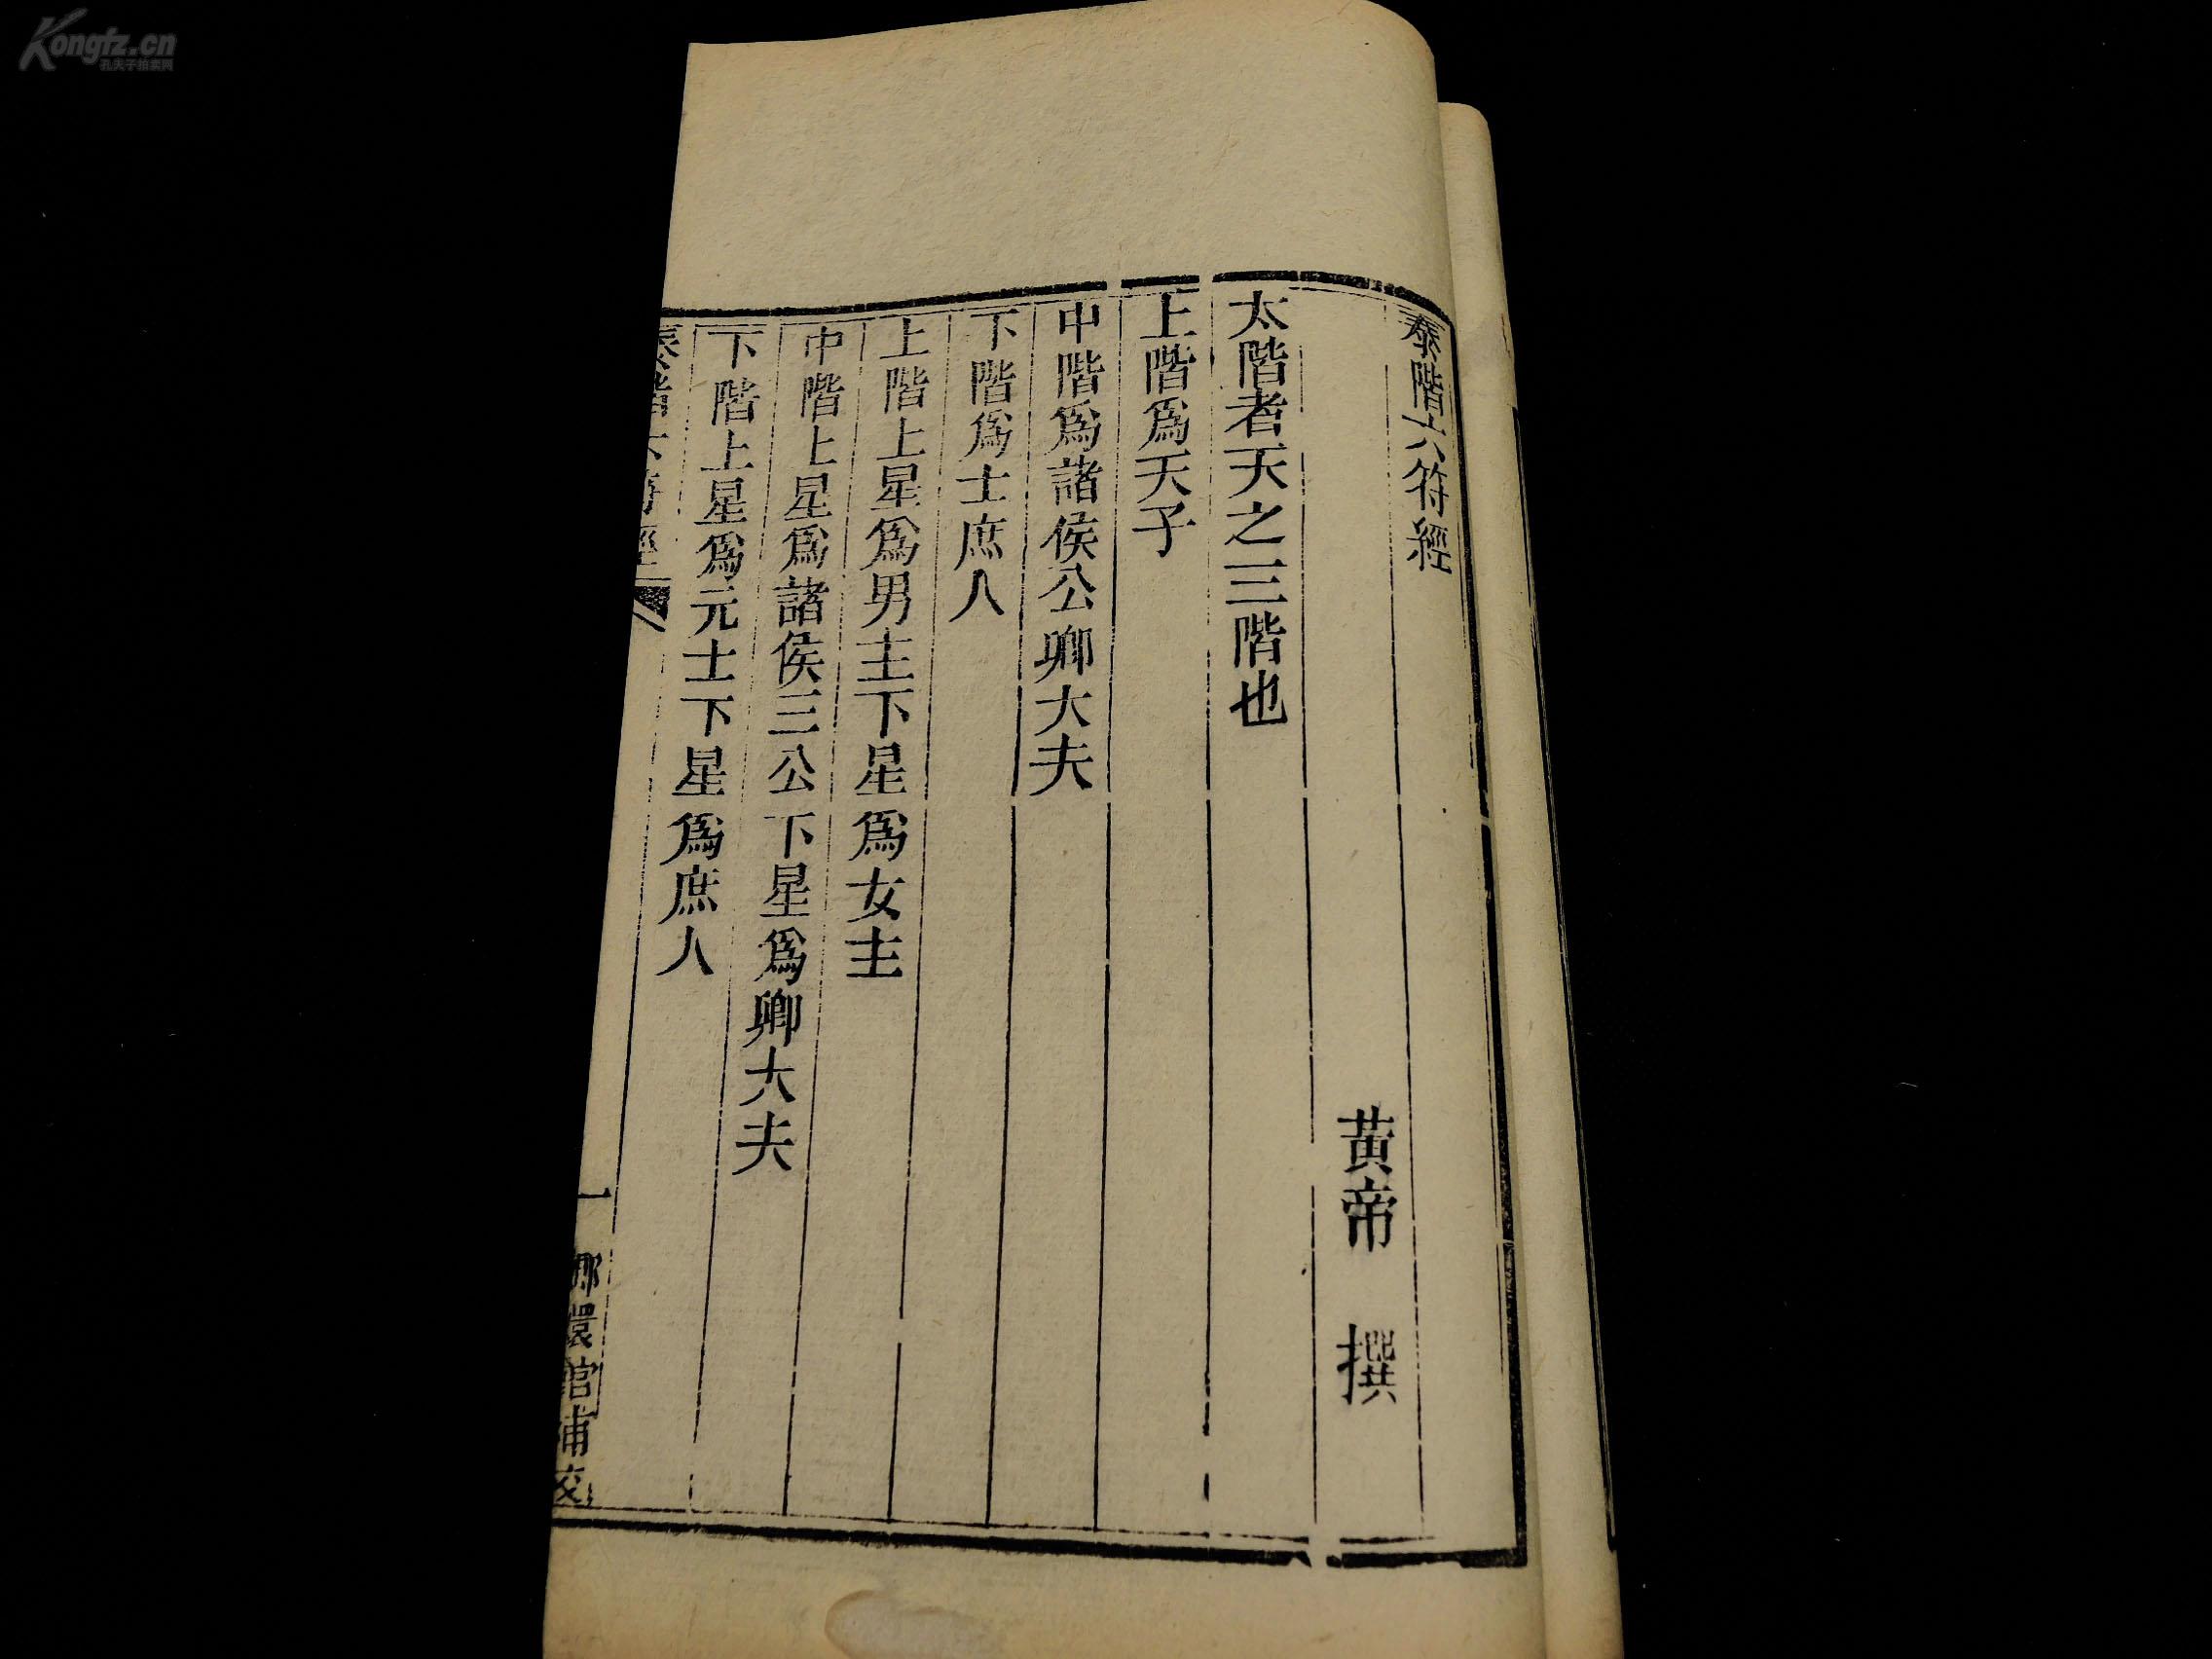 泰階六符經
黃帝 撰
太階者天之三階也
上階爲天子
中階爲諸侯公卿大夫
下階爲士庶人
上階上星爲男主下星爲女主
中階上星爲諸侯三公下星爲卿大夫
下階上星爲元士下星爲庶人
泰階六符經 一 嫏嬛館補校
Kongfz.cn
孔夫子拍卖网